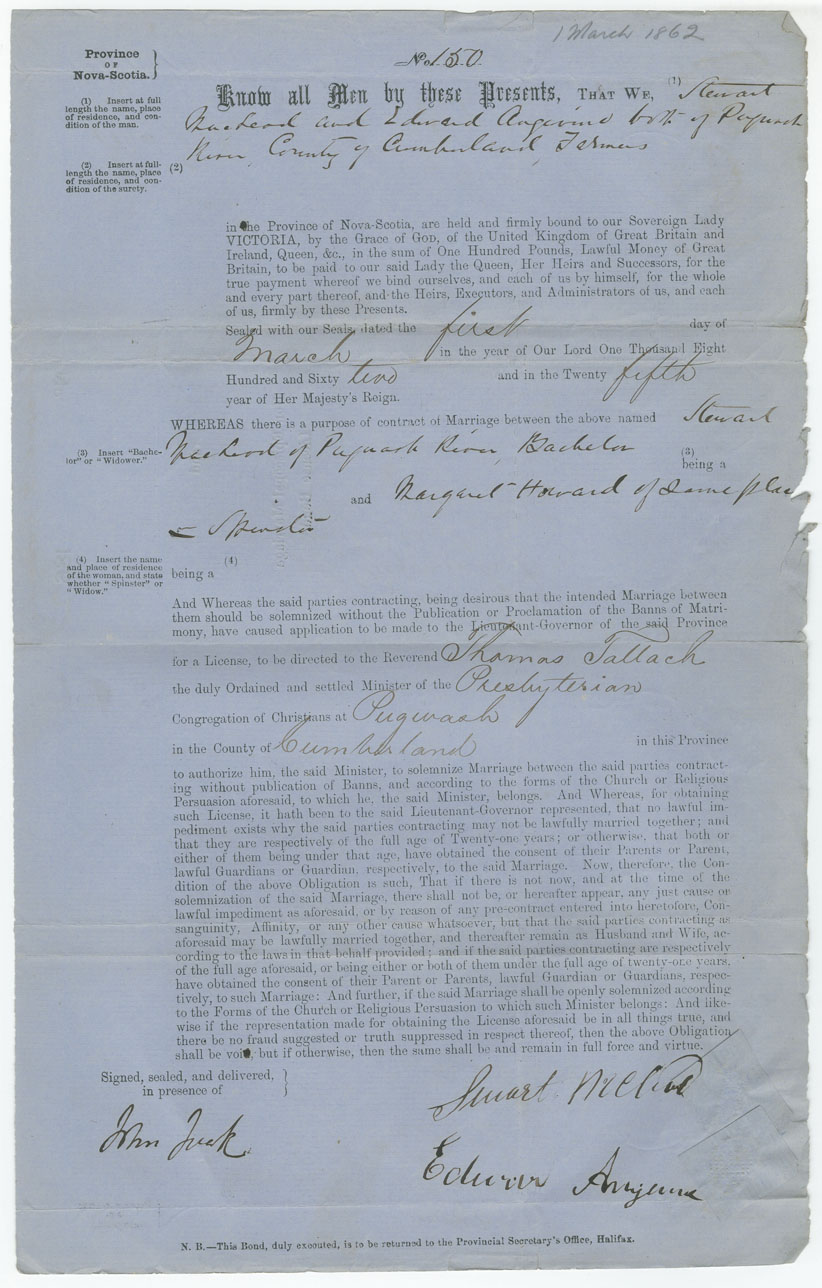 1 March 1862
Province
OF
Nova-Scotia.
No. 150.
Know all Men by these Presents, THAT WE, (1) Stewart
(1) Insert at full
length the name, place
of residence, and con-
dition of the man.
MacLeod and Edward Angevine both of Pugwash
River, County of Cumberland, Farmers
(2) Insert at full-
length the name, place
of residence, and con-
dition of the surety.
(2)
in the Province of Nova-Scotia, are held and firmly bound to our Sovereign Lady
VICTORIA, by the Grace of GOD, of the United Kingdom of Great Britain and
Ireland, Queen, &c., in the sum of One Hundred Pounds, Lawful Money of Great
Britain, to be paid to our said Lady the Queen, Her Heirs and Successors, for the
true payment whereof we bind ourselves, and each of us by himself, for the whole
and every part thereof, and the Heirs, Executors, and Administrators of us, and each
of us, firmly by these Presents.
Sealed with our Seals, dated the first day of
March in the year of Our Lord One Thousand Eight
Hundred and Sixty two and in the Twenty fifth
year of Her Majesty's Reign.
WHEREAS there is a purpose of contract of Marriage between the above named Stewart
MacLeod of Pugwash River, Bachelor
(3)
(3) Insert "Bache-
lor" or "Widower."
being a
and Margaret Howard of same place
– Spinster
(4)
(4) Insert the name
and place of residence
of the woman, and state
whether "Spinster" or
"Widow."
being a
And Whereas the said parties contracting, being desirous that the intended Marriage between
them should be solemnized without the Publication or Proclamation of the Banns of Matri-
mony, have caused application to be made to the Lieutenant-Governor of the said Province
for a License, to be directed to the Reverend Thomas Tallach
the duly Ordained and settled Minister of the Presbyterian
Congregation of Christians at Pugwash
in the County of Cumberland in this Province
to authorize him, the said Minister, to solemnize Marriage between the said parties contract-
ing without publication of Banns, and according to the forms of the Church or Religious
Persuasion aforesaid, to which he, the said Minister, belongs. And Whereas, for obtaining
such License, it hath been to the said Lieutenant-Governor represented, that no lawful im-
pediment exists why the said parties contracting may not be lawfully married together; and
that they are respectively of the full age of Twenty-one years; or otherwise, that both or
either of them being under that age, have obtained the consent of their Parents or Parent,
lawful Guardians or Guardian, respectively, to the said Marriage. Now, therefore, the Con-
dition of the above Obligation is such, That if there is not now, and at the time of the
solemnization of the said Marriage, there shall not be, or hereafter appear, any just cause or
lawful impediment as aforesaid, or by reason of any pre-contract entered into heretofore, Con-
sanguinity, Affinity, or any other cause whatsoever, but that the said parties contracting as
aforesaid may be lawfully married together, and thereafter remain as Husband and Wife, ac-
cording to the laws in that behalf provided; and if the said parties contracting are respectively
of the full age aforesaid, or being either or both of them under the full age of twenty-one years,
have obtained the consent of their Parent or Parents, lawful Guardian or Guardians, respec-
tively, to such Marriage: And further, if the said Marriage shall be openly solemnized according
to the Forms of the Church or Religious Persuasion to which such Minister belongs: And like-
wise if the representation made for obtaining the License aforesaid be in all things true, and
there be no fraud suggested or truth suppressed in respect thereof, then the above Obligation
shall be void, but if otherwise, then the same shall be and remain in full force and virtue.
Signed, sealed, and delivered,
in presence of
Stuart McClod
John Tuck
Edwar Angevine
N. B.—This Bond, duly executed, is to be returned to the Provincial Secretary's Office, Halifax.